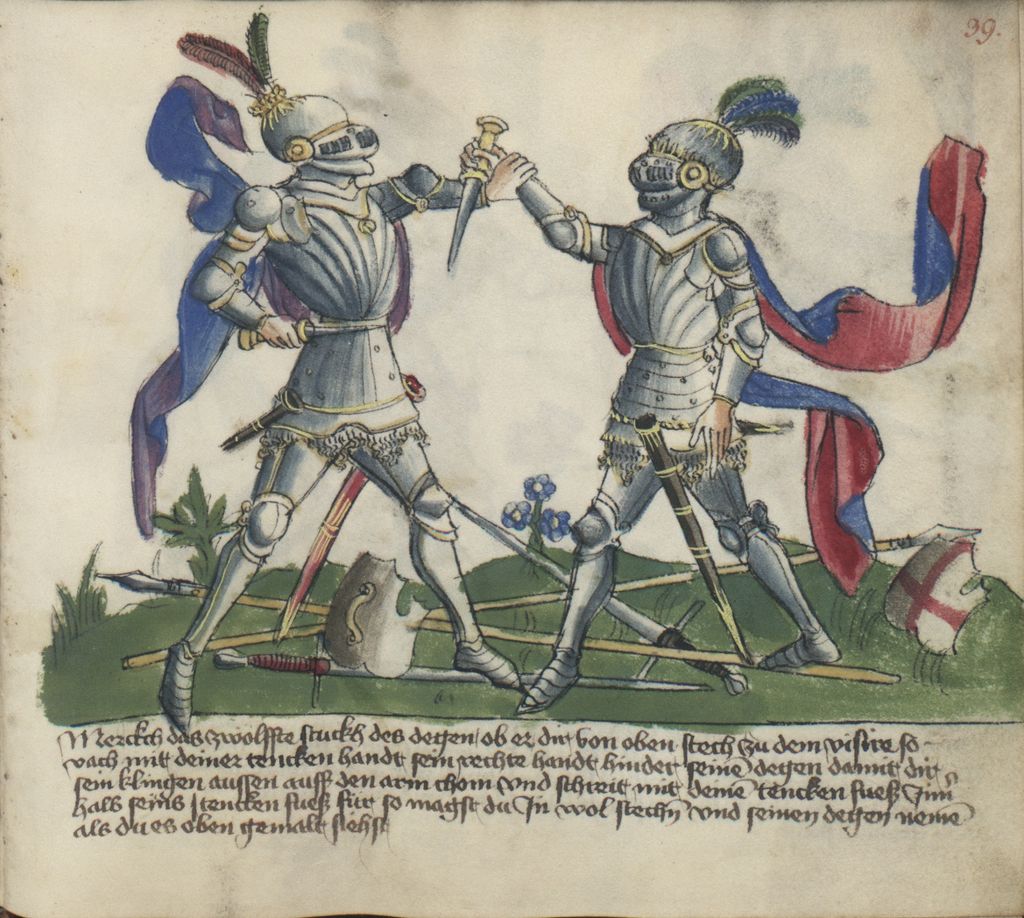 39.
Merckch das zwolffte stuckh des degen ob er dir von oben stech zu dem visire so
vach mit deiner tencken handt sein rechte handt hinder seinē degen damit dir
sein klingen aussen auff den arm chom vnd schreit mit deinē tencken fueß Inn
hals seins tencken fueß für so magst du In wol stechn̄ vnd seinen degen nemē
als du es oben gemalt siehst